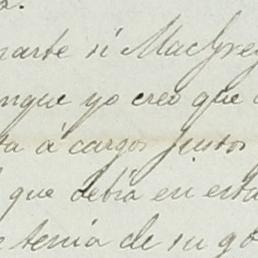 a.
marte si MacGreg
unque yo creo que
ta á cargos justos
que debia en esta
tenia de su go